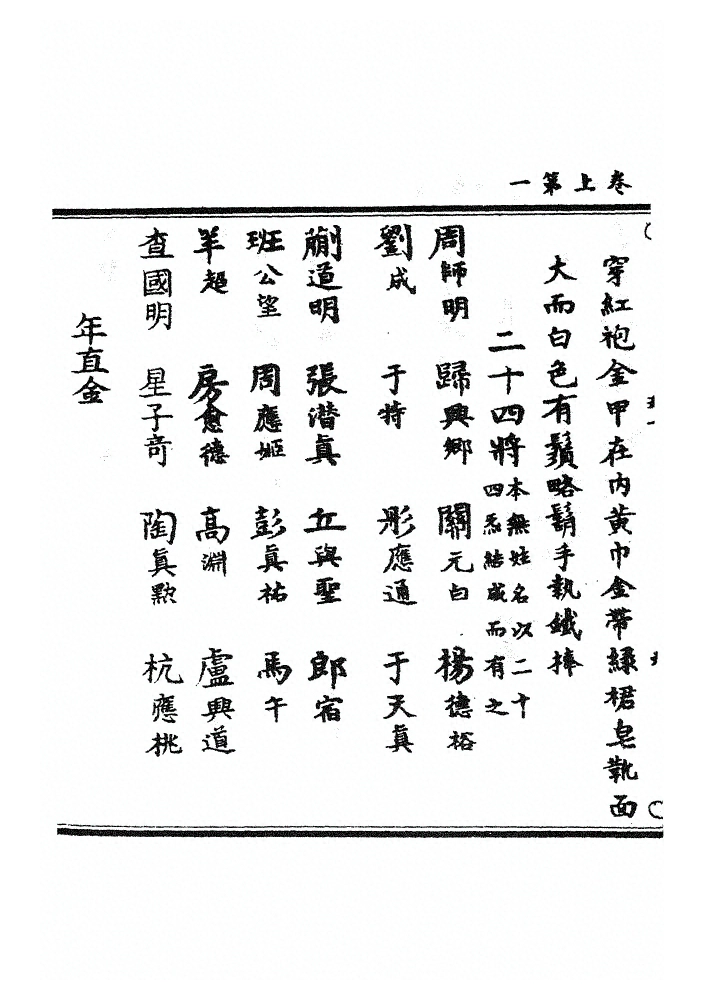 卷上第一
穿紅袍金甲在內黃巾金帶綠裙皂靴面
大而白色有鬚略鬍手執鐵捧
二十四將本無姓名以二十四炁結成而有之
周師明 歸興鄉 關元白 楊德裕
劉成 于特 彤應通 于天真
蒯道明 張潛真 丘與聖 郎宿
班公望 周應姬 彭真祐 馬午
羊超 房愈德 高淵 盧興道
查國明 星子奇 陶真㸃 杭應桃
年直金